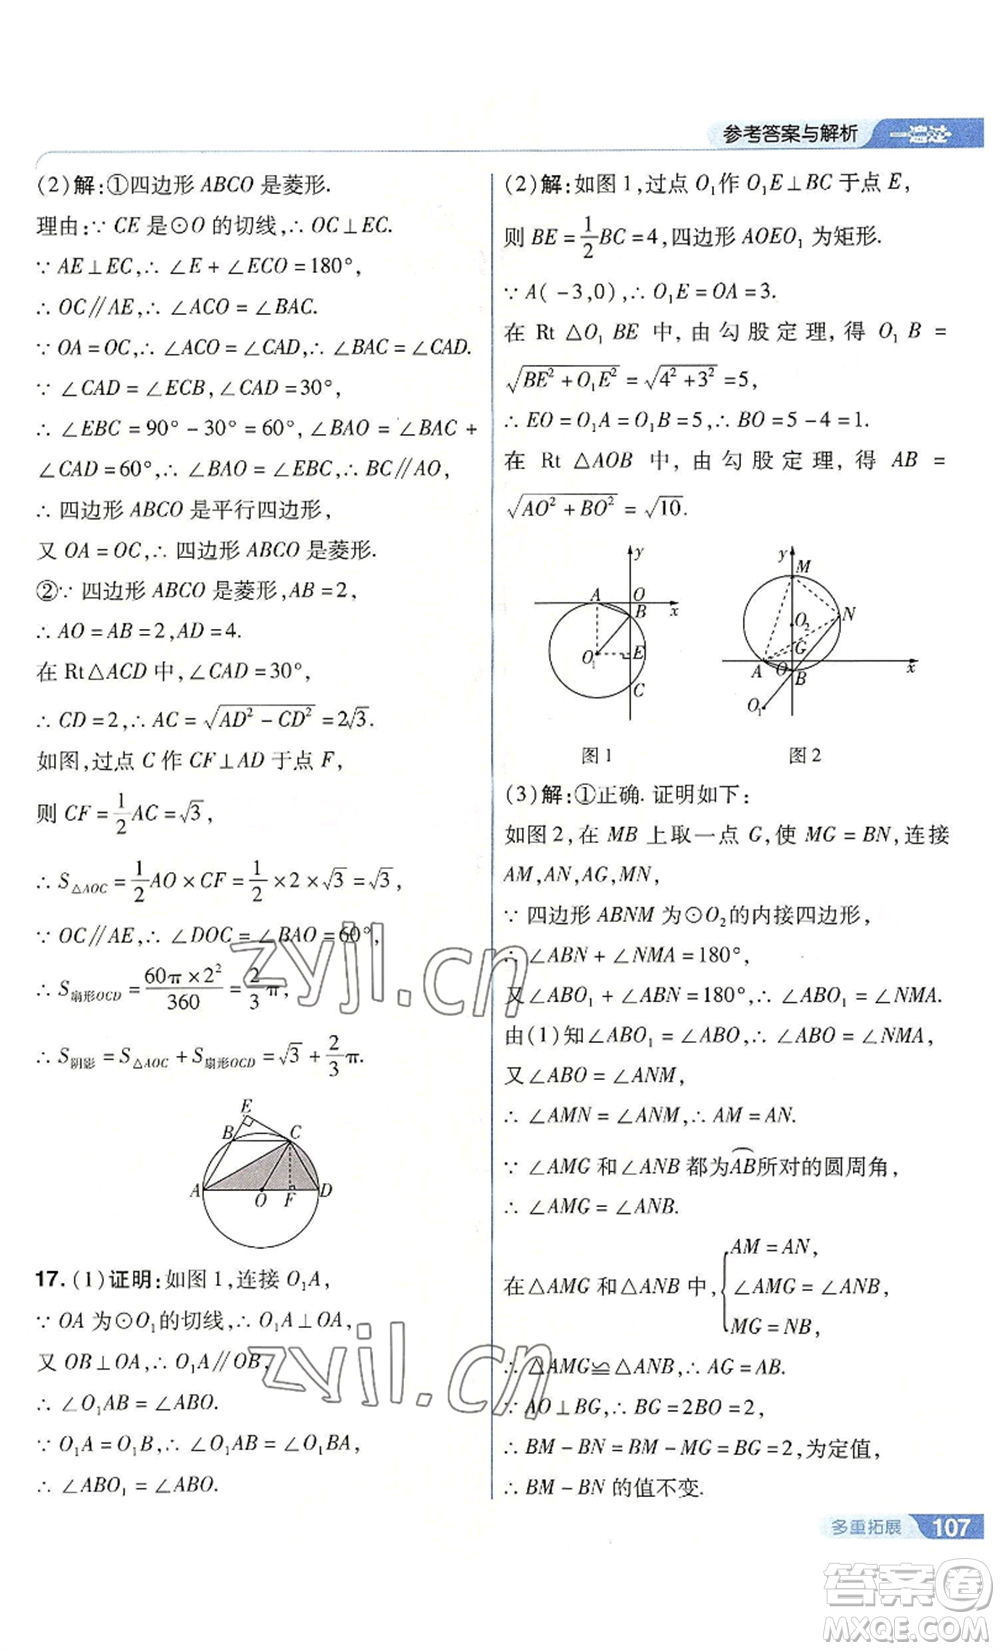 参考答案与解析 一遍过
(2)解:①四边形 ABCO 是菱形.
理由:∵ CE 是⊙O 的切线,∴ OC⊥EC.
∵ AE⊥EC,∴ ∠E+∠ECO=180°,
∴ OC∥AE,∴ ∠ACO=∠BAC.
∵ OA=OC,∴ ∠ACO=∠CAD,∴ ∠BAC=∠CAD.
∵ ∠CAD=∠ECB,∠CAD=30°,
∴ ∠EBC=90°-30°=60°,∠BAO=∠BAC+
∠CAD=60°,∴ ∠BAO=∠EBC,∴ BC∥AO,
∴ 四边形 ABCO 是平行四边形,
又 OA=OC,∴ 四边形 ABCO 是菱形.
②∵ 四边形 ABCO 是菱形,AB=2,
∴ AO=AB=2,AD=4.
在 Rt△ACD 中,∠CAD=30°,
∴ CD=2,∴ AC=√(AD²-CD²)=2√3.
如图,过点 C 作 CF⊥AD 于点 F,
则 CF=1/2 AC=√3,
∴ S△AOC=1/2 AO×CF=1/2×2×√3=√3,
∵ OC∥AE,∴ ∠DOC=∠BAO=60°,
∴ S扇形OCD=60π×2²/360=2/3 π,
∴ S阴影=S△AOC+S扇形OCD=√3+2/3 π.
E
B C
A O F D
17.(1)证明:如图 1,连接 O₁A,
∵ OA 为⊙O₁的切线,∴ O₁A⊥OA,
又 OB⊥OA,∴ O₁A∥OB,
∴ ∠O₁AB=∠ABO.
∵ O₁A=O₁B,∴ ∠O₁AB=∠O₁BA,
∴ ∠ABO₁=∠ABO.
(2)解:如图 1,过点 O₁作 O₁E⊥BC 于点 E,
则 BE=1/2 BC=4,四边形 AOEO₁ 为矩形.
∵ A(-3,0),∴ O₁E=OA=3.
在 Rt △O₁BE 中,由勾股定理,得 O₁B=
√(BE²+O₁E²)=√(4²+3²)=5,
∴ EO=O₁A=O₁B=5,∴ BO=5-4=1.
在 Rt △AOB 中,由勾股定理,得 AB=
√(AO²+BO²)=√10.
y
A O x
B
O₁ E
C
图 1
y
M
N
O₂
G
A O B x
O₁
图 2
(3)解:①正确. 证明如下:
如图 2,在 MB 上取一点 G,使 MG=BN,连接
AM,AN,AG,MN,
∵ 四边形 ABNM 为⊙O₂的内接四边形,
∴ ∠ABN+∠NMA=180°,
又∠ABO₁+∠ABN=180°,∴ ∠ABO₁=∠NMA.
由(1)知∠ABO₁=∠ABO,∴ ∠ABO=∠NMA,
又∠ABO=∠ANM,
∴ ∠AMN=∠ANM,∴ AM=AN.
∵ ∠AMG 和∠ANB 都为A͡B所对的圆周角,
∴ ∠AMG=∠ANB.
在△AMG 和△ANB 中,{AM=AN,
∠AMG=∠ANB,
MG=NB,
∴ △AMG≌△ANB,∴ AG=AB.
∵ AO⊥BG,∴ BG=2BO=2,
∴ BM-BN=BM-MG=BG=2,为定值,
∴ BM-BN 的值不变.
多重拓展 107
zyjl.cn
zyjl.cn
答案卷
MXQE.COM